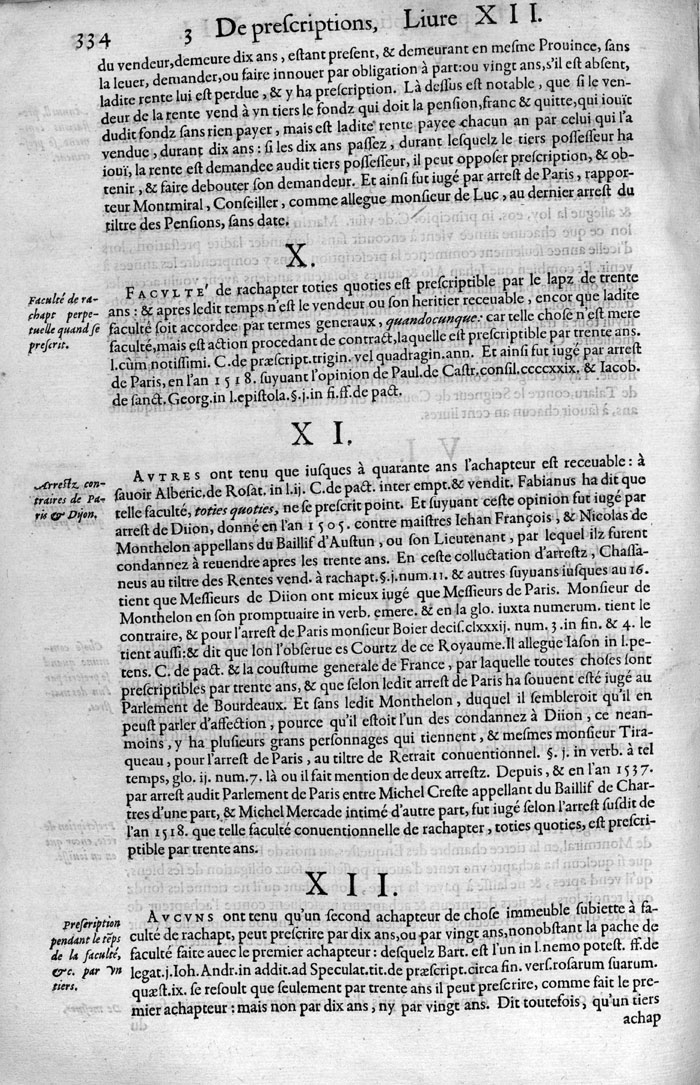 334 3 De prescriptions, Liure XII.
du vendeur, demeure dix ans, estant present, & demeurant en mesme Prouince, sans
la leuer, demander, ou faire innouer par obligation à part: ou vingt ans, s'il est absent,
ladite rente lui est perdue, & y ha prescription. Là dessus est notable, que si le ven-
deur de la rente vend à vn tiers le fondz qui doit la pension, franc & quitte, qui iouït
dudit fondz sans rien payer, mais est ladite rente payee chacun an par celui qui l'a
vendue, durant dix ans: si les dix ans passez, durant lesquelz le tiers possesseur ha
iouï, la rente est demandee audit tiers possesseur, il peut opposer prescription, & ob-
tenir, & faire debouter son demandeur. Et ainsi fut iugé par arrest de Paris, rappor-
teur Montmiral, Conseiller, comme allegue monsieur de Luc, au dernier arrest du
tiltre des Pensions, sans date.
X.
Faculté de ra-
chapt perpe-
tuelle quand se
prescrit.
FACVLTE' de rachapter toties quoties est prescriptible par le lapz de trente
ans: & apres ledit temps n'est le vendeur ou son heritier receuable, encor que ladite
faculté soit accordee par termes generaux, quandocunque: car telle chose n'est mere
faculté, mais est action procedant de contract, laquelle est prescriptible par trente ans.
l. cùm notissimi. C. de præscript. trigin. vel quadragin. ann. Et ainsi fut iugé par arrest
de Paris, en l'an 1518. suyuant l'opinion de Paul. de Castr. consil. ccccxxix. & Iacob.
de sanct. Georg. in l. epistola. §. j. in fi. ff. de pact.
XI.
Arrestz con-
traires de Pa-
ris & Dijon.
AVTRES ont tenu que iusques à quarante ans l'achapteur est receuable: à
sauoir Alberic. de Rosat. in l. ij. C. de pact. inter empt. & vendit. Fabianus ha dit que
telle faculté, toties quoties, ne se prescrit point. Et suyuant ceste opinion fut iugé par
arrest de Diion, donné en l'an 1505. contre maistres Iehan François, & Nicolas de
Monthelon appellans du Baillif d'Austun, ou son Lieutenant, par lequel ilz furent
condannez à reuendre apres les trente ans. En ceste colluctation d'arrestz, Chassa-
neus au tiltre des Rentes vend. à rachapt. §. j. num. 11. & autres suyuans iusques au 16.
tient que Messieurs de Diion ont mieux iugé que Messieurs de Paris. Monsieur de
Monthelon en son promptuaire in verb. emere. & en la glo. iuxta numerum. tient le
contraire, & pour l'arrest de Paris monsieur Boier decis. clxxxij. num. 3. in fin. & 4. le
tient aussi: & dit que lon l'obserue es Courtz de ce Royaume. Il allegue Iason in l. pe-
tens. C. de pact. & la coustume generale de France, par laquelle toutes choses sont
prescriptibles par trente ans, & que selon ledit arrest de Paris ha souuent esté iugé au
Parlement de Bourdeaux. Et sans ledit Monthelon, duquel il sembleroit qu'il en
peust parler d'affection, pource qu'il estoit l'un des condannez à Diion, ce nean-
moins, y ha plusieurs grans personnages qui tiennent, & mesmes monsieur Tira-
queau, pour l'arrest de Paris, au tiltre de Retrait conuentionnel. §. j. in verb. à tel
temps, glo. ij. num. 7. là ou il fait mention de deux arrestz. Depuis, & en l'an 1537.
par arrest audit Parlement de Paris entre Michel Creste appellant du Baillif de Char-
tres d'une part, & Michel Mercade intimé d'autre part, fut iugé selon l'arrest susdit de
l'an 1518. que telle faculté conuentionnelle de rachapter, toties quoties, est prescri-
ptible par trente ans.
XII.
Prescription
pendant le tẽps
de la faculté,
&c. par vn
tiers.
AVCVNS ont tenu qu'un second achapteur de chose immeuble subiette à fa-
culté de rachapt, peut prescrire par dix ans, ou par vingt ans, nonobstant la pache de
faculté faite auec le premier achapteur: desquelz Bart. est l'un in l. nemo potest. ff. de
legat. j. Ioh. Andr. in addit. ad Speculat. tit. de præscript. circa fin. vers. rosarum suarum.
quæst. ix. se resoult que seulement par trente ans il peut prescrire, comme fait le pre-
mier achapteur: mais non par dix ans, ny par vingt ans. Dit toutesfois, qu'un tiers
achap